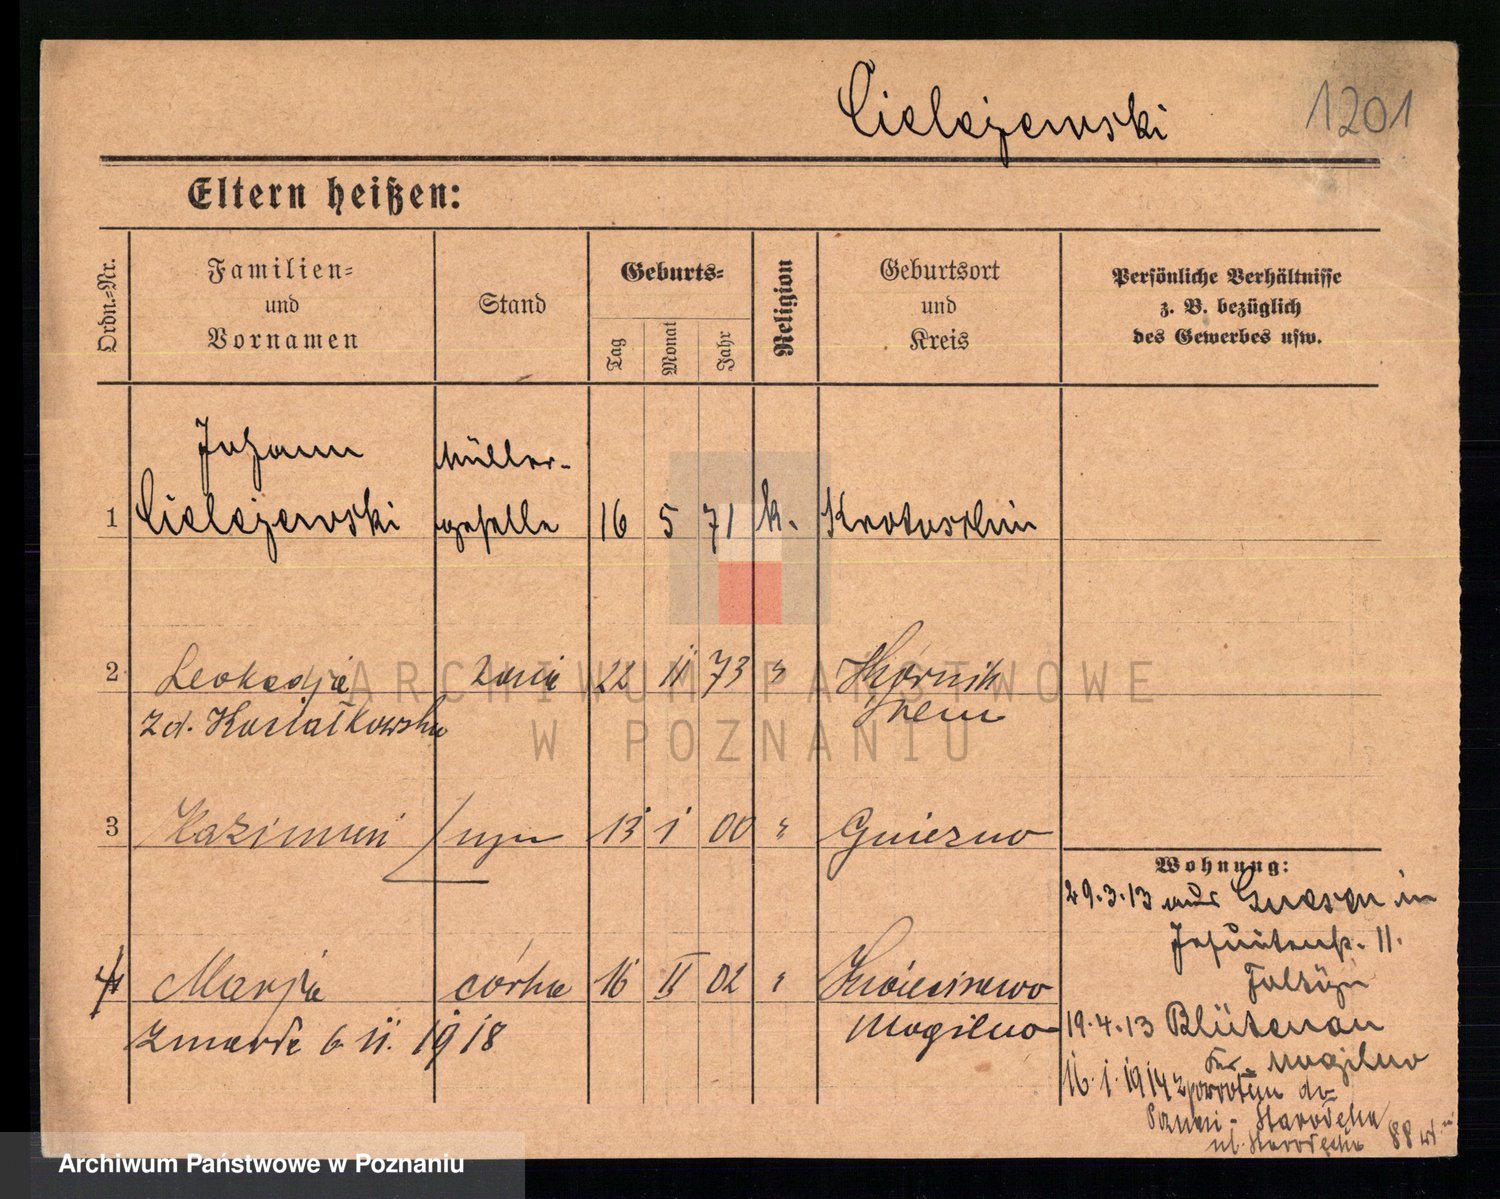 Cielejewski
1201
Eltern heißen:
Ordn.-Nr.
Familien-
und
Vornamen
Stand
Geburts-
Tag
Monat
Jahr
Religion
Geburtsort
und
Kreis
Persönliche Verhältnisse
z. B. bezüglich
des Gewerbes usw.
Johann
Müller-
1 Cielejewski geselle 16 5 71 k. Krotoschin
2 Leokadja żona 22 11 73 " Kórnik
zd. Śrem
3 Kazimierz syn 13 1 00 " Gniezno
Wohnung:
29.3.13 aus Gnesen in
Jesuitenstr. 11.
4 Marja córka 16 II 02 "
Mogilno
zmarła 6 11. 1918
19.4.13 Blütenau
Kr. Mogilno
16.1.1914 z powrotem do
Poznań - Starołęka
ul. Starołęcka 88
ARCHIWUM PAŃSTWOWE
W POZNANIU
Archiwum Państwowe w Poznaniu